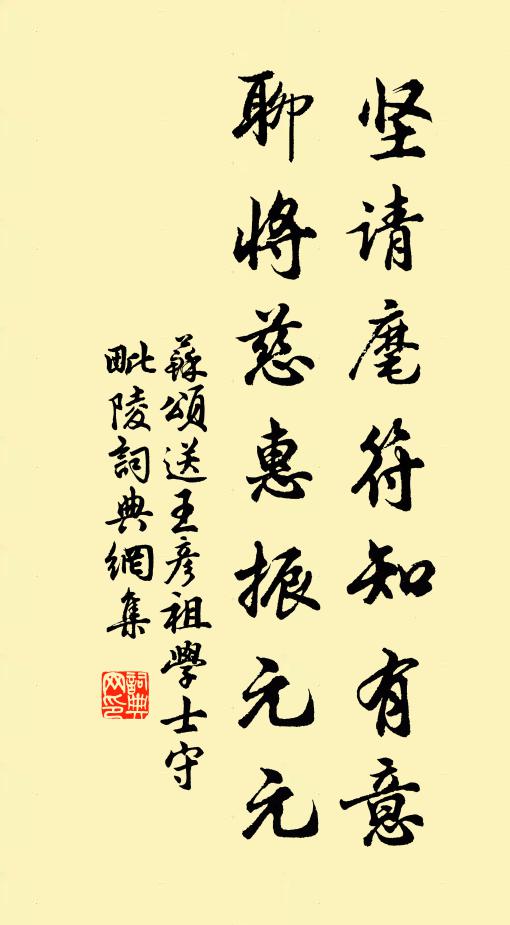 坚请麾符知有意
聊将慈惠振元元
蘇頌送王彦祖學士守
毗陵詞典網集
詞典
网印